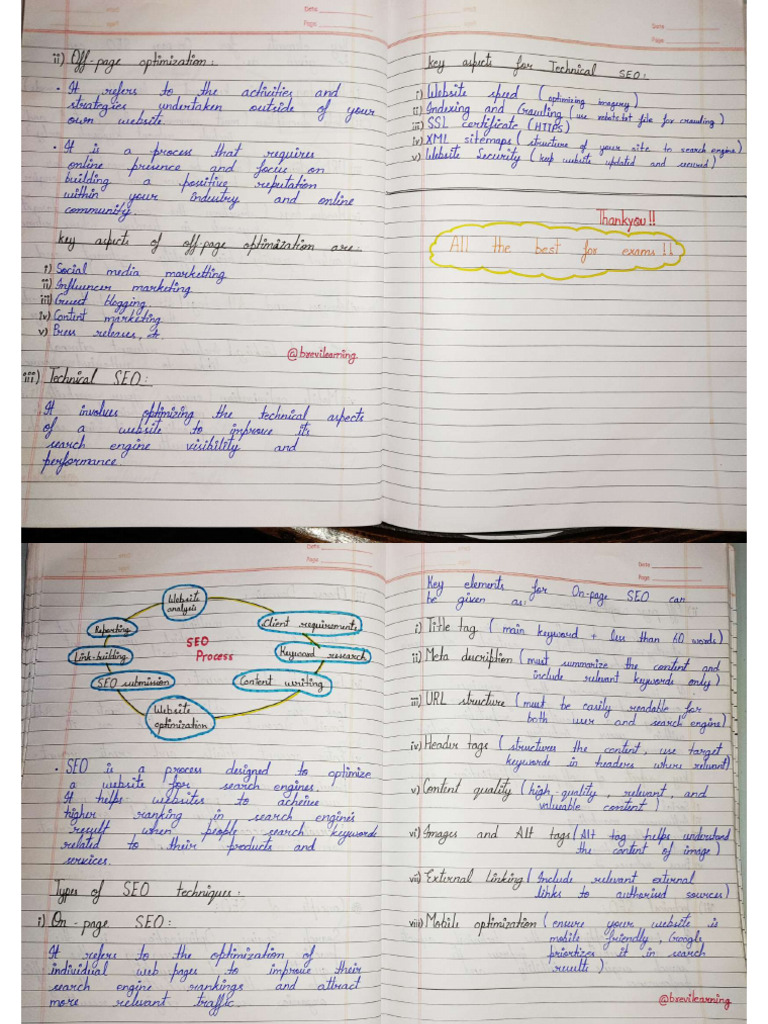 Date
Page
ii) Off-page optimization:
• It refers to the activities and
strategies undertaken outside of your
own website.
• It is a process that requires
online presence and focus on
building a positive reputation
within your industry and online
community.
key aspects of off-page optimization are:
i) Social media marketting
ii) Influencer marketing
iii) Guest blogging
iv) Content marketing
v) Press releases, et.
@brevilearning
iii) Technical SEO:
It involves optimizing the technical aspects
of a website to improve its
search engine visibility and
performance.
Date
Page
key aspects for Technical SEO:
i) Website speed (optimizing imagery)
ii) Indexing and Crawling (use robots.txt file for crawling)
iii) SSL certificate (HTTPS)
iv) XML sitemaps (structure of your site to search engine)
v) Website Security (keep website updated and secured)
Thankyou!!
All the best for exams!!
Date
Page
Website
analysis
Client requirements
Keyword research
Content writing
Website
optimization
SEO submission
Link-building
Reporting
SEO
Process
• SEO is a process designed to optimize
a website for search engines.
It helps websites to acheive
higher ranking in search engines
result when people search keywords
related to their products and
services.
Types of SEO techniques:
i) On-page SEO:
It refers to the optimization of
individual web pages to improve their
search engine rankings and attract
more relevant traffic.
Date
Page
Key elements for On-page SEO can
be given as:
i) Title tag (main keyword + less than 60 words)
ii) Meta description (must summarize the content and
include relevant keywords only)
iii) URL structure (must be easily readable for
both user and search engine)
iv) Header tags (structures the content, use target
keywords in headers where relevant)
v) Content quality (high quality, relevant, and
valueable content)
vi) Images and Alt tags (Alt tag helps understand
the content of image)
vii) External Linking (Include relevant external
links to authorised sources)
viii) Mobile optimization (ensure your website is
mobile friendly, Google
prioritizes it in search
results)
@brevilearning